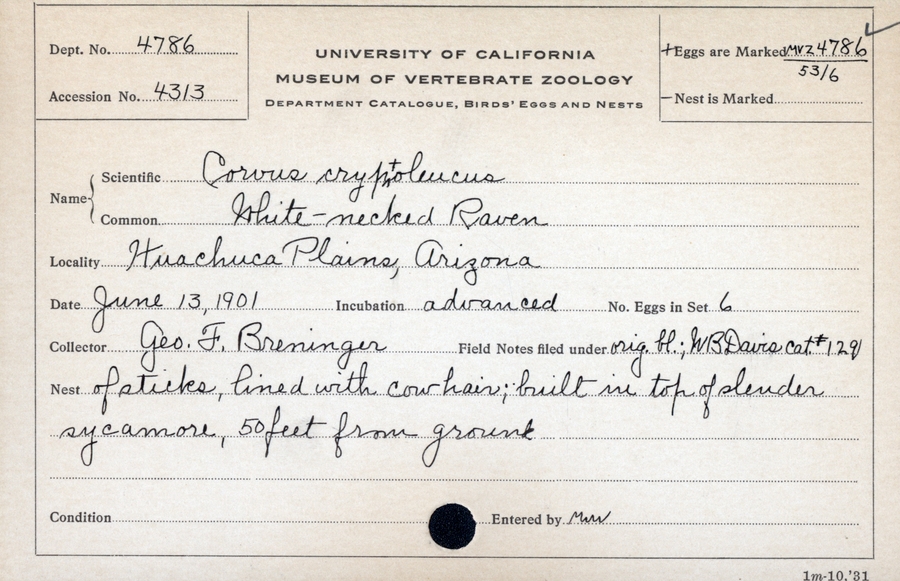 Dept. No. 4786
Accession No. 4313
UNIVERSITY OF CALIFORNIA
MUSEUM OF VERTEBRATE ZOOLOGY
DEPARTMENT CATALOGUE, BIRDS' EGGS AND NESTS
+Eggs are Marked MVZ 4786
53/6
—Nest is Marked
Name
Scientific Corvus cryptoleucus
Common White-necked Raven
Locality Huachuca Plains, Arizona
Date June 13, 1901 Incubation advanced No. Eggs in Set 6
Collector Geo. F. Breninger Field Notes filed under orig. bl.; WBDavis cat.# 1291
Nest of sticks, lined with cow hair; built in top of slender
sycamore, 50 feet from ground
Condition Entered by
1m-10,'31